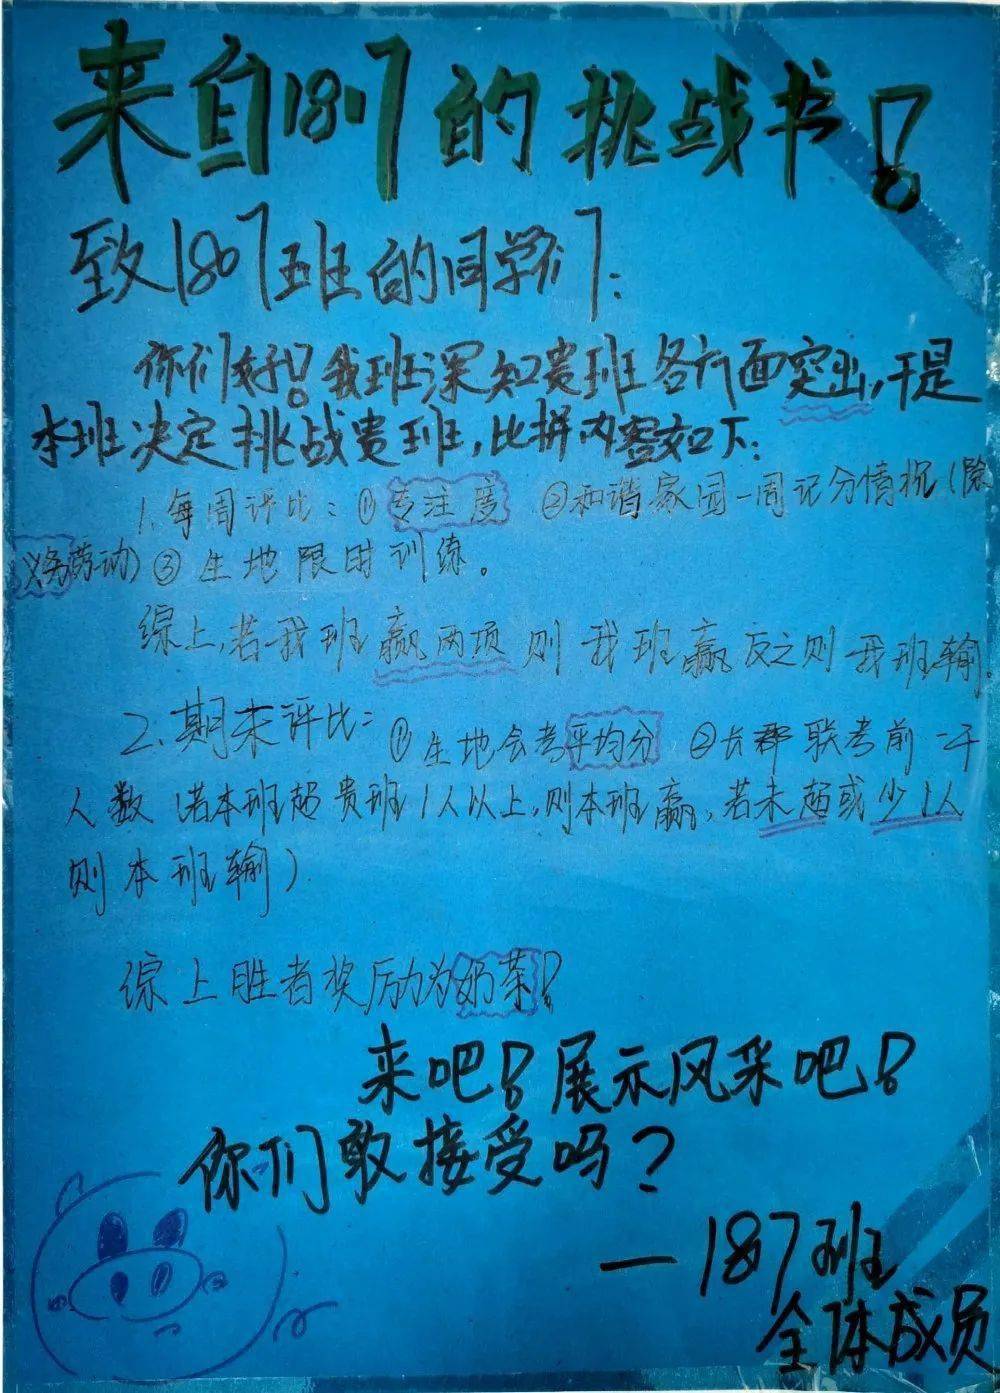 来自1817的挑战书!
致1807班的同学们:
你们好!我班深知贵班各方面突出,于是
本班决定挑战贵班,比拼内容如下:
1.每周评比:①专注度 ②和谐家园一周记分情况(除
义务劳动)③生地限时训练。
综上,若我班赢两项则我班赢反之则我班输。
2.期末评比:①生地会考平均分 ②长郡联考前一千
人数(若本班超贵班1人以上,则本班赢,若未超或少1人
则本班输)
综上胜者奖励为奶茶!
来吧!展示风采吧!
你们敢接受吗?
—187班
全体成员